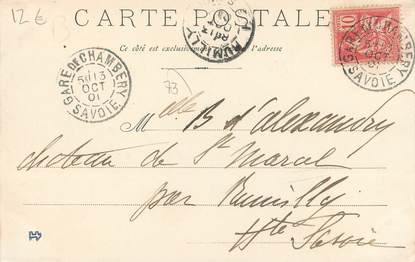 12 €
CARTE POSTALE
Ce côté est exclusivement réservé à l'adresse
GARE DE CHAMBERY
5E 13
OCT
01
SAVOIE
RUMILLY
10
GARE DE CHAMBERY
OCT
01
SAVOIE
73
Mdle B d'alexandry
chateau de St Marcel
par Rumilly
Hte Savoie